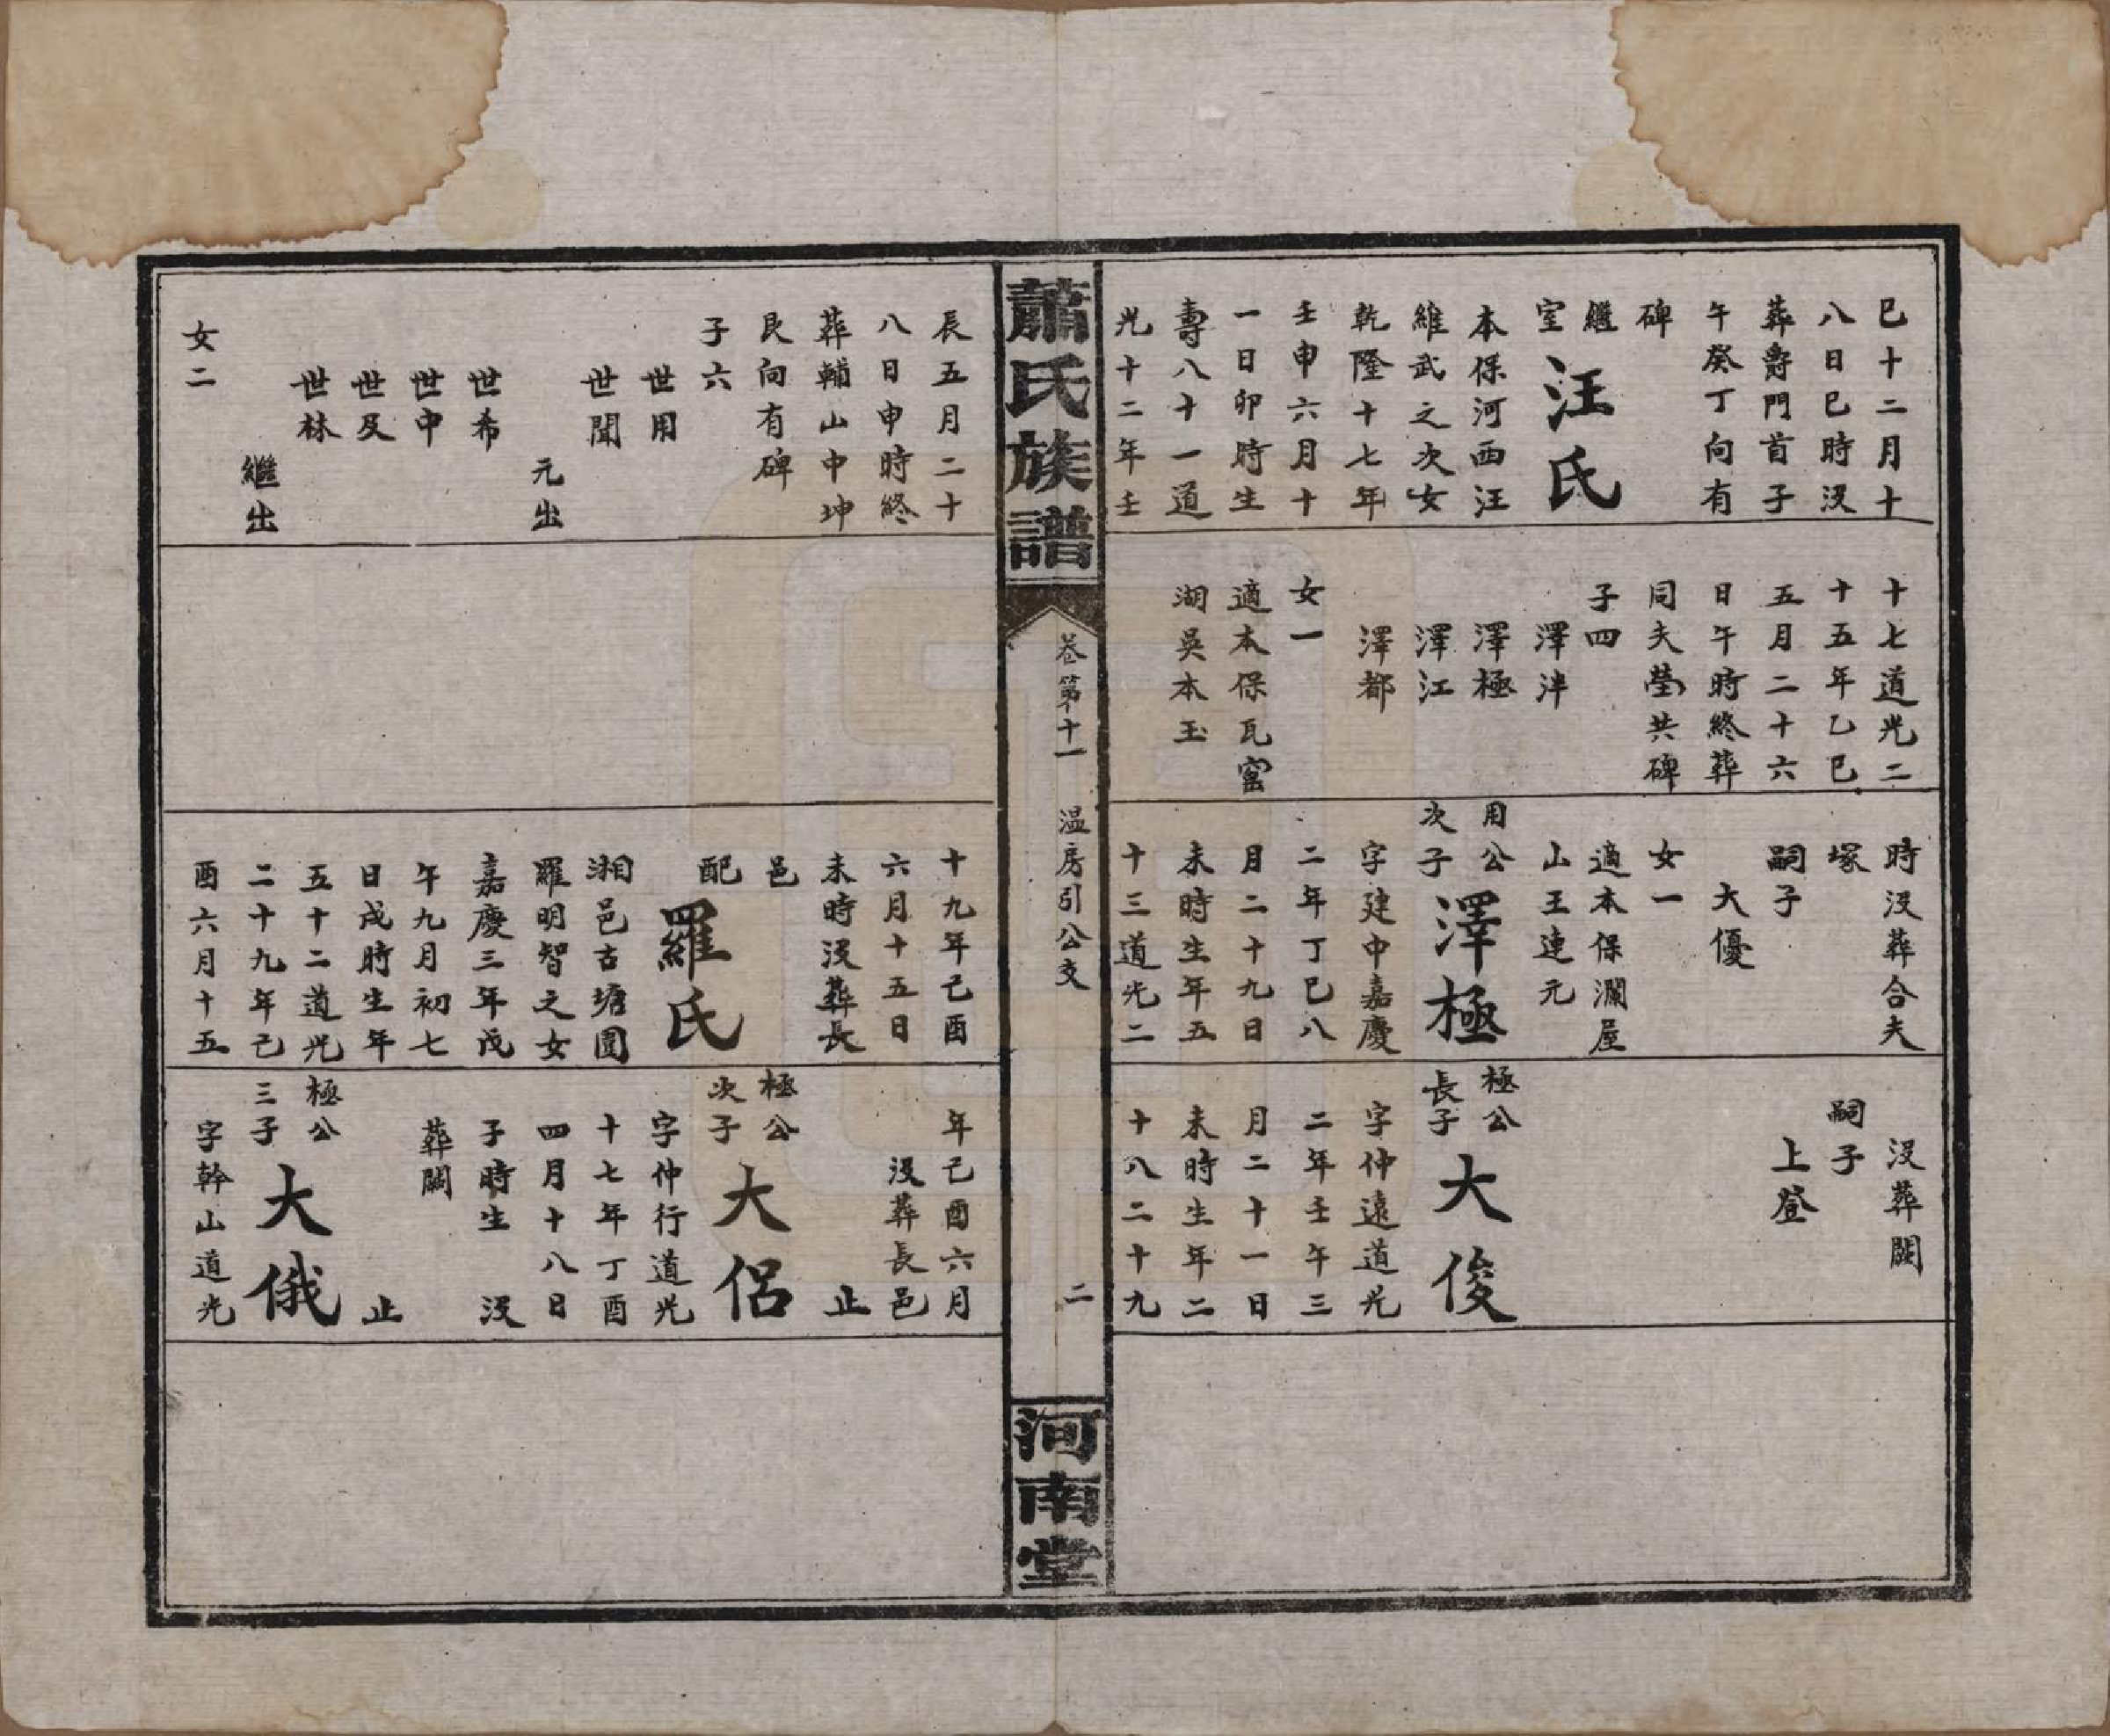 巳十二月十
八日巳時沒
葬爵門首子
午癸丁向有
碑
繼室汪氏
本保河西汪
維武之次女
乾隆十七年
壬申六月十
一日卯時生
壽八十一道
光十二年壬
十七道光二
十五年乙巳
五月二十六
日午時終葬
同夫塋共碑
子四
澤泮
澤極
澤江
澤都
女一
適本保瓦窑
湖吳本玉
時沒葬合夫
塚
嗣子
大優
女一
適本保瀾屋
山王連元
用公次子澤極
字建中嘉慶
二年丁巳八
月二十九日
未時生年五
十三道光二
沒葬闕
嗣子
上登
極公長子大俊
字仲遠道光
二年壬午三
月二十一日
未時生年二
十八二十九
蕭氏族譜
卷第十一
温房引公支
二
河南堂
辰五月二十
八日申時終
葬輔山中坤
艮向有碑
子六
世用
世聞
元出
世希
世中
世及
世林
繼出
女二
十九年己酉
六月十五日
未時沒葬長
邑
配羅氏
湘邑古塘圍
羅明智之女
嘉慶三年戊
午九月初七
日戌時生年
五十二道光
二十九年己
酉六月十五
年己酉六月
沒葬長邑
止
極公次子大侶
字仲行道光
十七年丁酉
四月十八日
子時生 沒
葬闕
止
極公三子大俄
字幹山道光